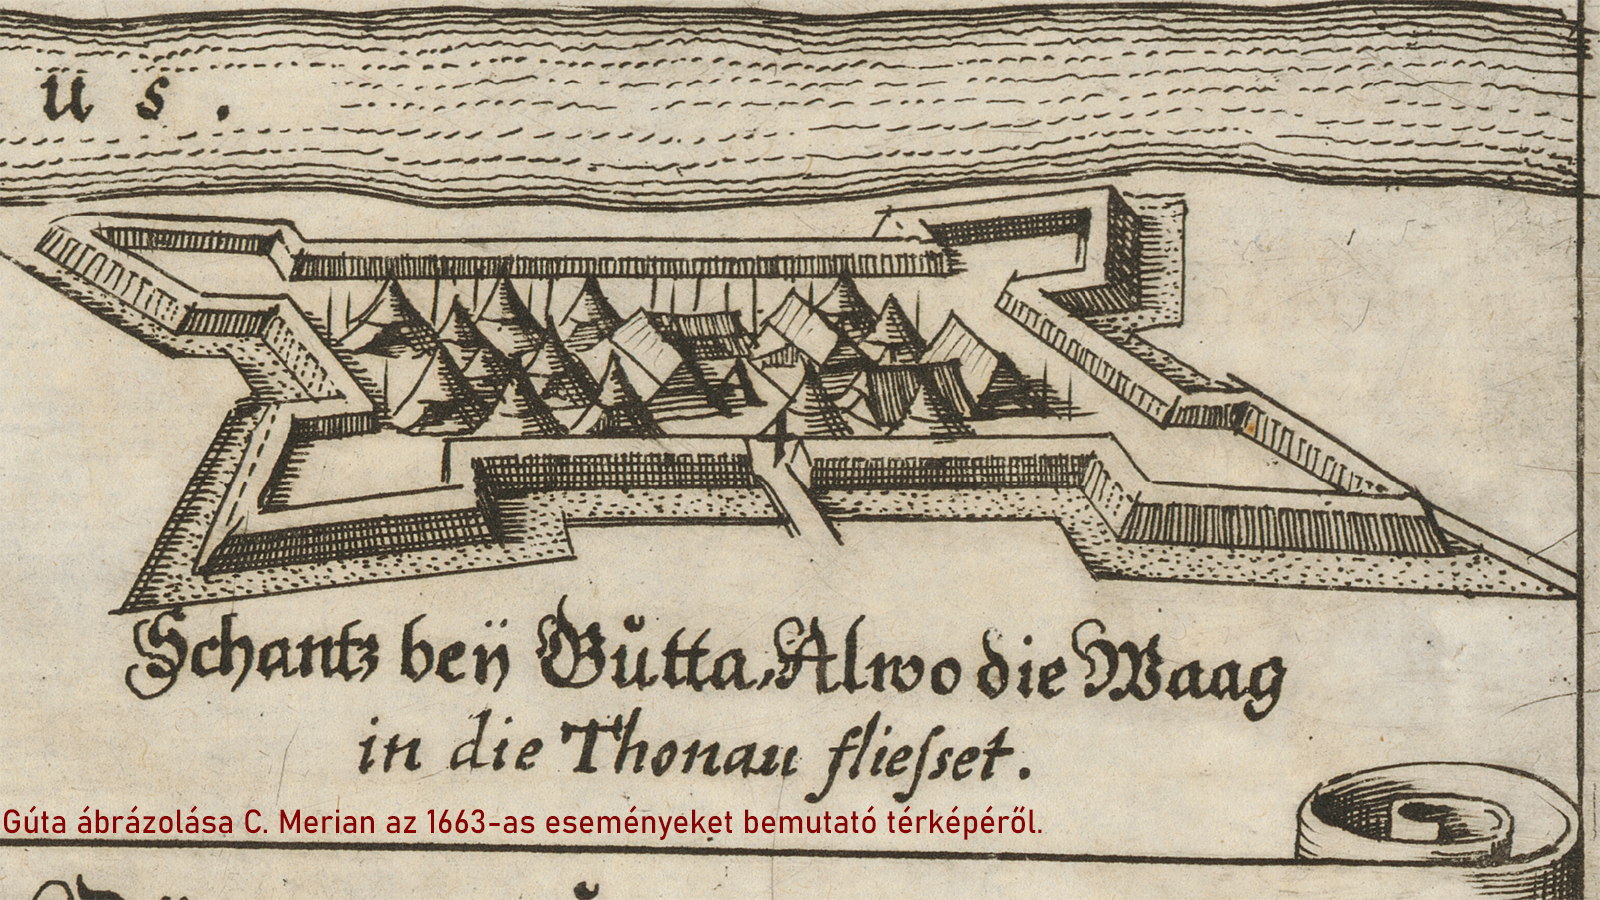 u s .
Schantz beÿ Gůtta, Alwo die Waag
in die Thonau flieſset.
Gúta ábrázolása C. Merian az 1663-as eseményeket bemutató térképéről.